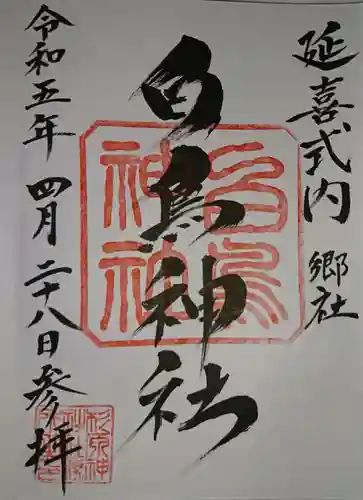 延喜式内 郷社
白鳥神社
白鳥
神社
令和五年 四月二十八日参拝